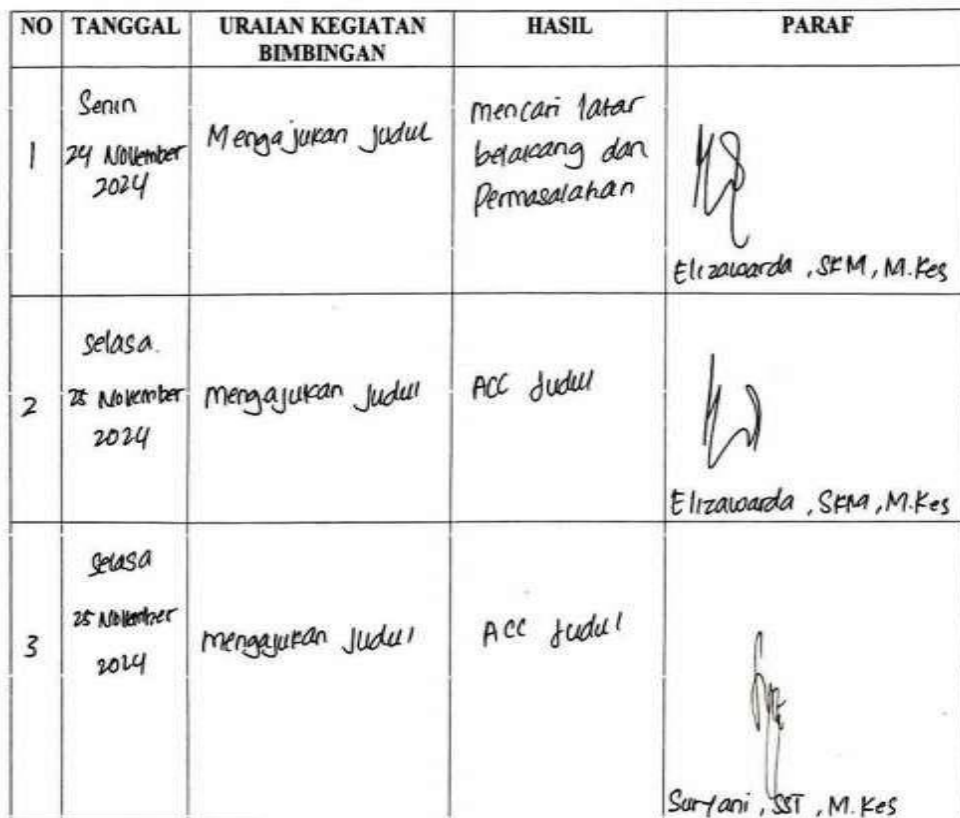 NO TANGGAL URAIAN KEGIATAN BIMBINGAN HASIL PARAF
1
Senin
24 November
2024
Mengajukan Judul
Mencari latar
belakang dan
Permasalahan
Elizawarda, SKM, M.Kes
2
Selasa.
25 November
2024
Mengajukan Judul
ACC Judul
Elizawarda, SKM, M.Kes
3
Selasa
25 November
2024
Mengajukan Judul
ACC Judul
Suryani, SST, M.Kes